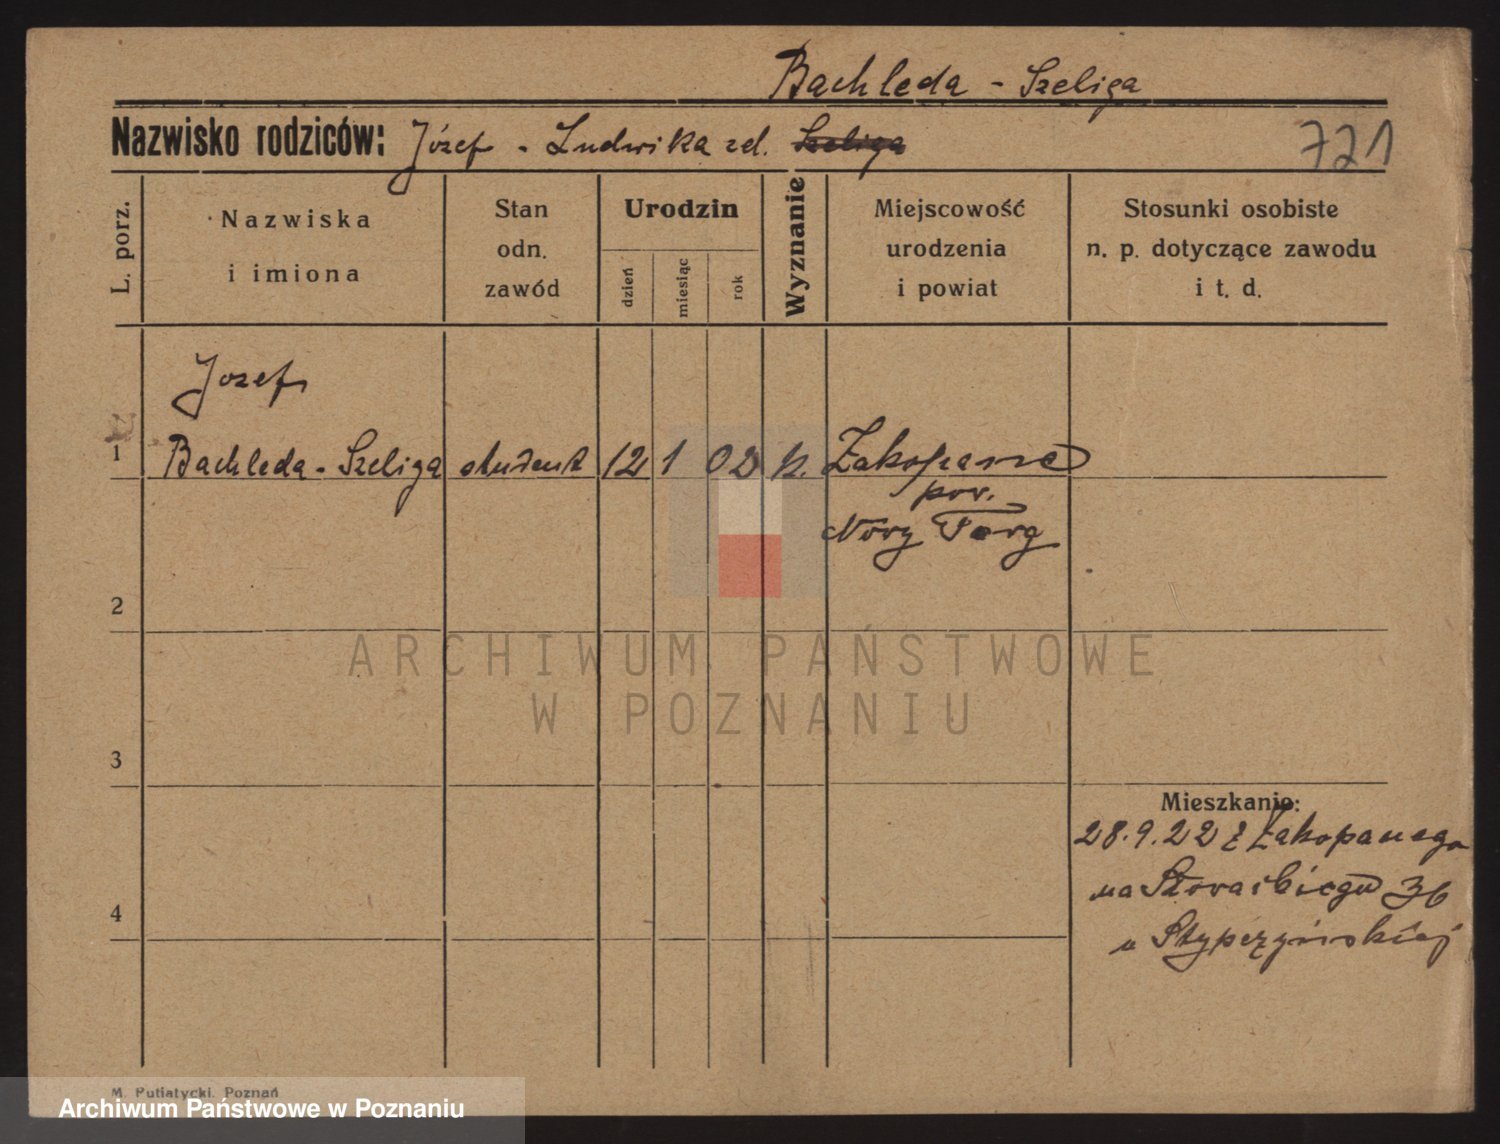 Bachleda - Szeliga
Nazwisko rodziców: Józef - Ludwika zd. Szeliga
721
L. porz.
Nazwiska
i imiona
Stan
odn.
zawód
Urodzin
dzień
miesiąc
rok
Wyznanie
Miejscowość
urodzenia
i powiat
Stosunki osobiste
n. p. dotyczące zawodu
i t. d.
Jozef
1 Bachleda - Szeliga student 12 1 02 k. Zakopane
pow.
Nowy Targ
2
ARCHIWUM PAŃSTWOWE
W POZNANIU
3
Mieszkanie:
28.9.22 z Zakopanego
na 36
4
u Stypczyńskiej
M. Putiatycki. Poznań
Archiwum Państwowe w Poznaniu